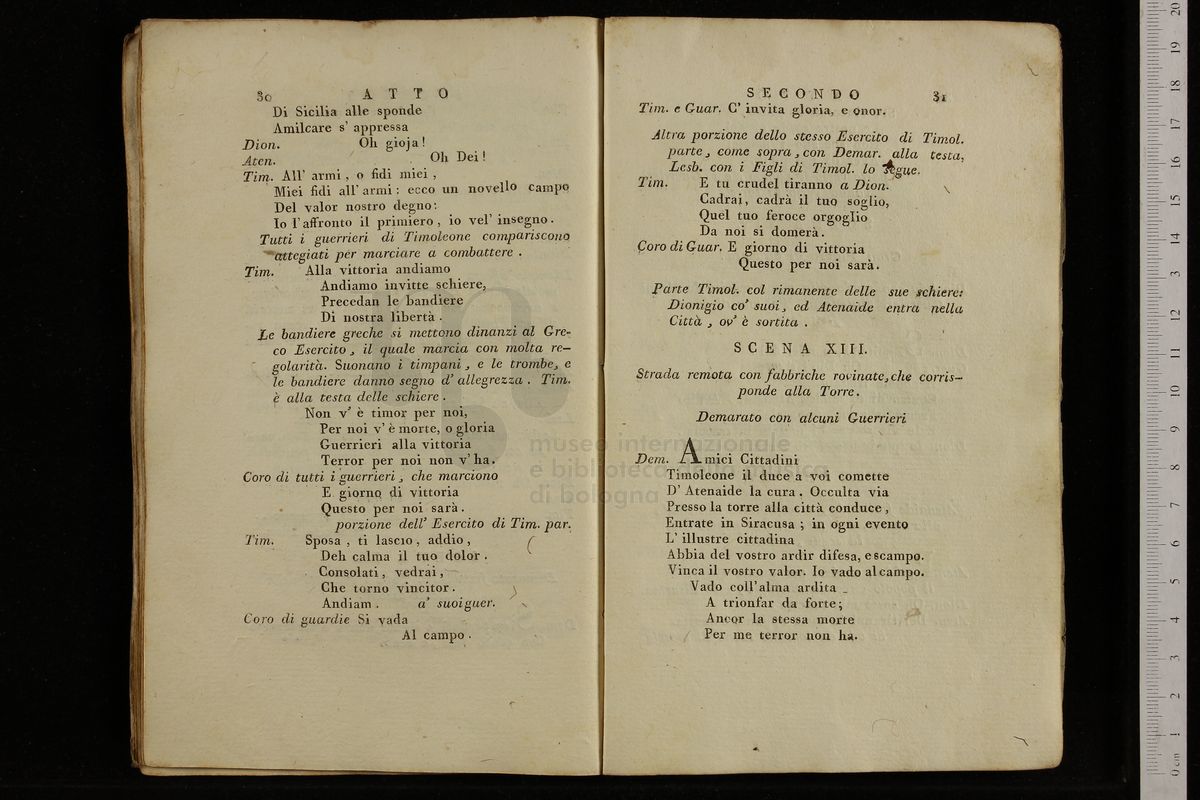 30 ATTO
Di Sicilia alle sponde
Amilcare s' appressa
Dion. Oh gioja!
Aten. Oh Dei!
Tim. All' armi, o fidi miei,
Miei fidi all' armi: ecco un novello campo
Del valor nostro degno:
Io l'affronto il primiero, io vel' insegno.
Tutti i guerrieri di Timoleone compariscono
attegiati per marciare a combattere.
Tim. Alla vittoria andiamo
Andiamo invitte schiere,
Precedan le bandiere
Di nostra libertà.
Le bandiere greche si mettono dinanzi al Gre-
co Esercito, il quale marcia con molta re-
golarità. Suonano i timpani, e le trombe, e
le bandiere danno segno d' allegrezza. Tim.
è alla testa delle schiere.
Non v' è timor per noi,
Per noi v' è morte, o gloria
Guerrieri alla vittoria
Terror per noi non v' ha.
Coro di tutti i guerrieri, che marciono
E giorno di vittoria
Questo per noi sarà.
porzione dell' Esercito di Tim. par.
Tim. Sposa, ti lascio, addio,
Deh calma il tuo dolor.
Consolati, vedrai,
Che torno vincitor.
Andiam. a' suoi guer.
Coro di guardie Si vada
Al campo.
SECONDO 31
Tim. e Guar. C' invita gloria, e onor.
Altra porzione dello stesso Esercito di Timol.
parte, come sopra, con Demar. alla testa,
Lesb. con i Figli di Timol. lo segue.
Tim. E tu crudel tiranno a Dion.
Cadrai, cadrà il tuo soglio,
Quel tuo feroce orgoglio
Da noi si domerà.
Coro di Guar. E giorno di vittoria
Questo per noi sarà.
Parte Timol. col rimanente delle sue schiere:
Dionigio co' suoi, ed Atenaide entra nella
Città, ov' è sortita.
SCENA XIII.
Strada remota con fabbriche rovinate, che corris-
ponde alla Torre.
Demarato con alcuni Guerrieri
Dem. Amici Cittadini
Timoleone il duce a voi comette
D' Atenaide la cura. Occulta via
Presso la torre alla città conduce,
Entrate in Siracusa; in ogni evento
L' illustre cittadina
Abbia del vostro ardir difesa, e scampo.
Vinca il vostro valor. Io vado al campo.
Vado coll' alma ardita
A trionfar da forte;
Ancor la stessa morte
Per me terror non ha.
museo internazionale
e biblioteca della musica
di bologna
0 cm 1 2 3 4 5 6 7 8 9 10 11 12 13 14 15 16 17 18 19 20